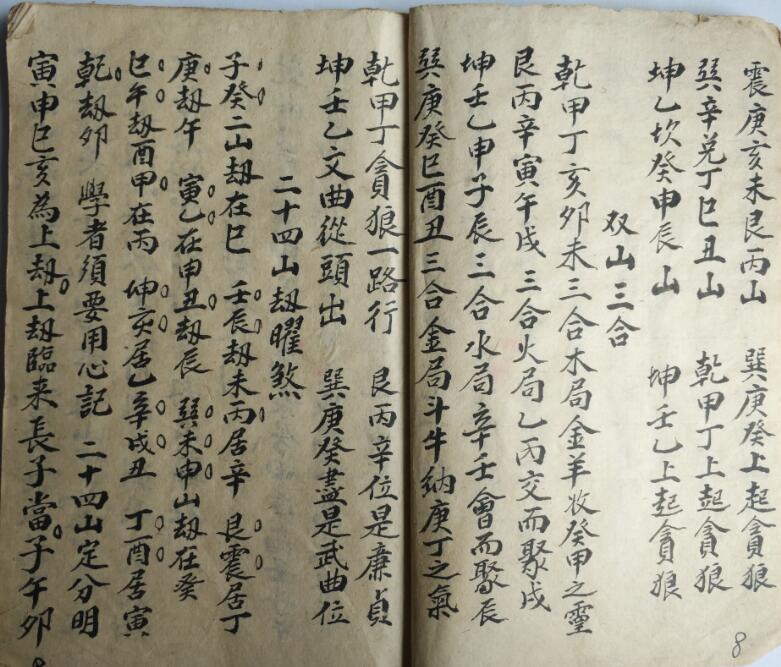 震庚亥未艮丙山　巽庚癸上起貪狼
巽辛兌丁巳丑山　乾甲丁上起貪狼
坤乙坎癸申辰山　坤壬乙上起貪狼
双山三合
乾甲丁亥夘未三合木局金羊收癸甲之靈
艮丙辛寅午戌三合火局乙丙交而聚戌
坤壬乙申子辰三合水局辛壬會而聚辰
巽庚癸巳酉丑三合金局斗牛納庚丁之氣
8
乾甲丁貪狼一路行　艮丙辛位是廉貞
坤壬乙文曲從頭出　巽庚癸盡是武曲位
二十四山劫曜煞
子癸二山劫在巳　壬辰劫未丙居辛　艮震居丁
庚劫午　寅乙在申丑劫辰　巽未申山劫在癸
巳午劫酉甲在丙　坤亥居乙辛戌丑　丁酉居寅
乾劫夘　學者須要用心記　二十四山定分明
寅申巳亥為上劫上劫臨来長子當子午夘